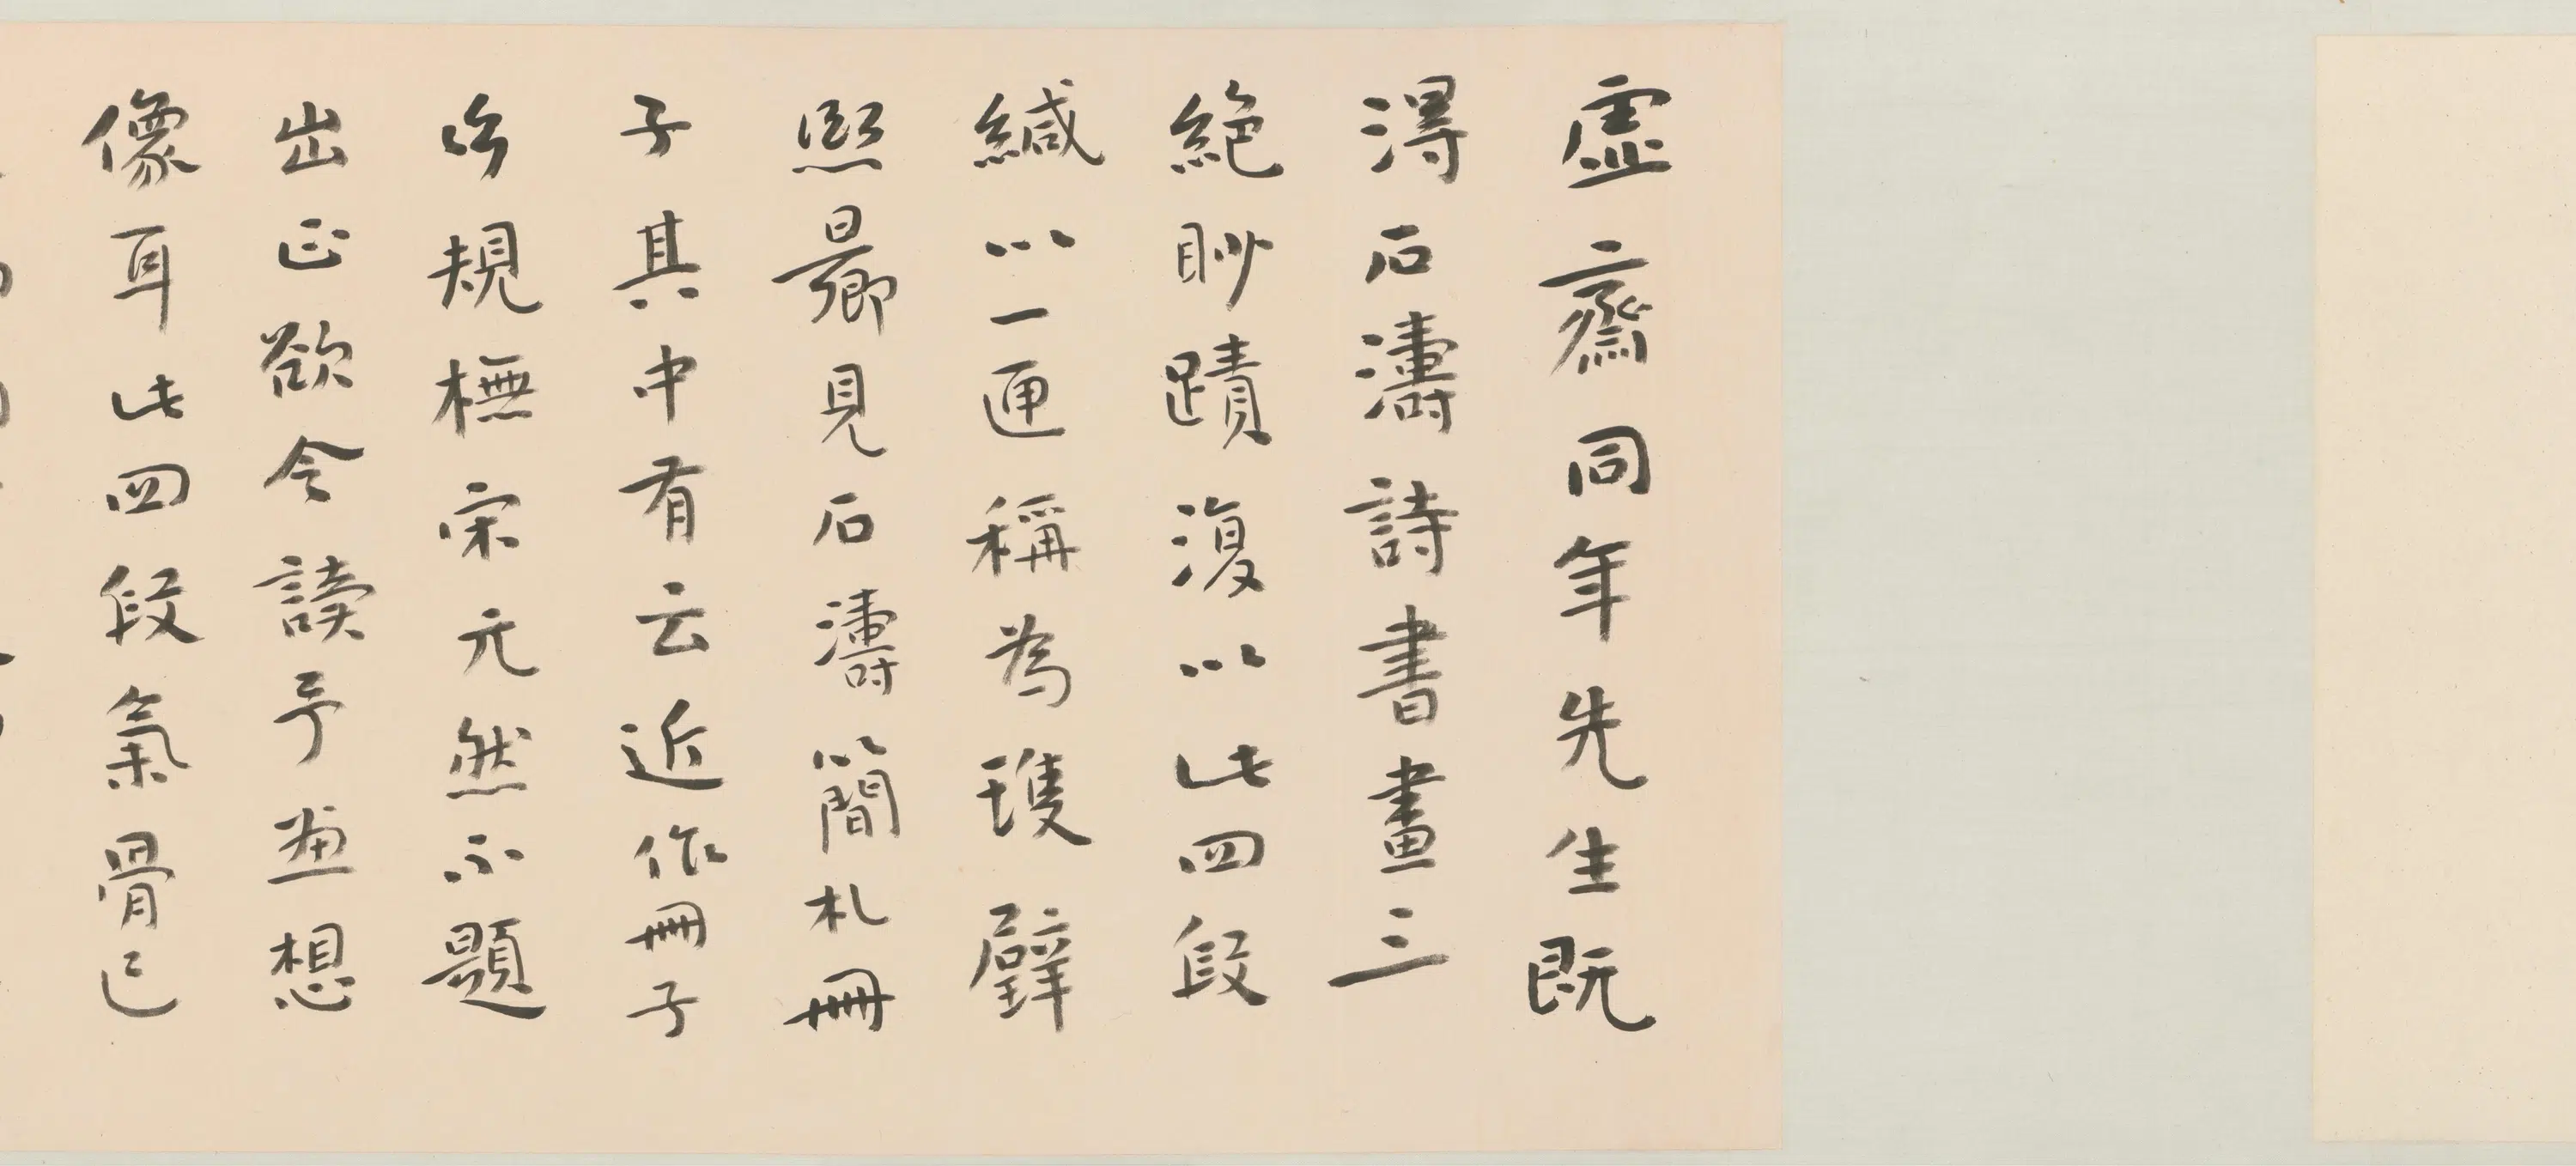 虛齋同年先生既
得石濤詩書畫三
絕眇蹟復以此四段
緘以一匣稱為雙璧
熙曩見石濤簡札冊
子其中有云近作冊子
規橅宋元然不題
出正欲令讀予畫想
像耳此四段氣骨已